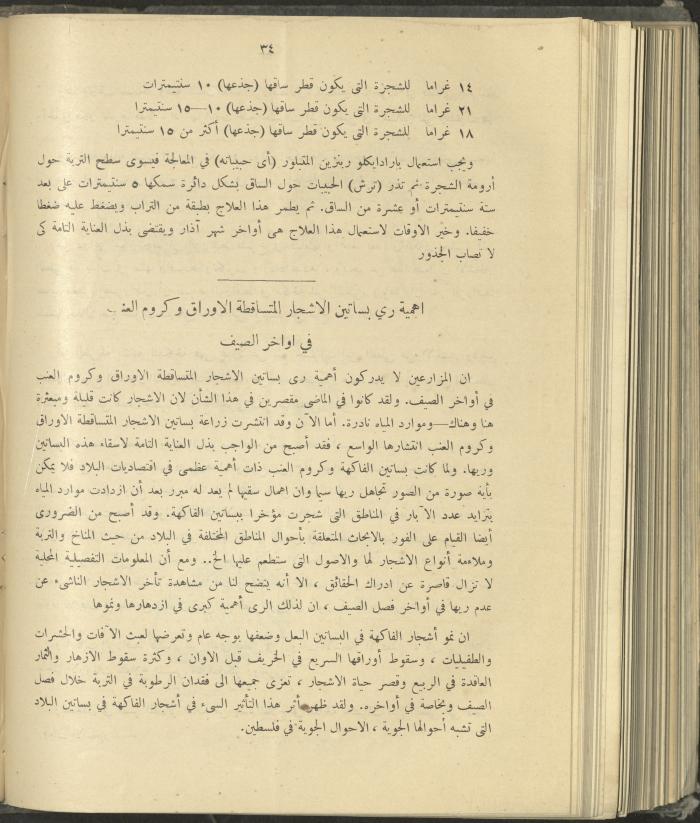 ٣٤
١٤ غراما للشجرة التى يكون قطر ساقها (جذعها) ١٠ سنتيمترات
٢١ غراما للشجرة التى يكون قطر ساقها (جذعها) ١٠—١٥ سنتيمترا
١٨ غراما للشجرة التى يكون قطر ساقها (جذعها) أكثر من ١٥ سنتيمترا
ويجب استعمال بارادايكلو رينزين المتبلور (أى حبيباته) في المعالجة فيسوى سطح التربة حول
أرومة الشجرة ثم تذر (ترش) الحبيبات حول الساق بشكل دائرة سمكها ٥ سنتيمترات على بعد
ستة سنتيمترات أو عشرة من الساق. ثم يطمر هذا العلاج بطبقة من التراب ويضغط عليه ضغطا
خفيفا. وخير الاوقات لاستعمال هذا العلاج هى أواخر شهر آذار ويقتضى بذل العناية التامة كى
لا تصاب الجذور
اهمية ري بساتين الاشجار المتساقطة الاوراق وكروم العنب
في اواخر الصيف
ان المزارعين لا يدركون أهمية رى بساتين الاشجار المتساقطة الاوراق وكروم العنب
في أواخر الصيف. ولقد كانوا في الماضى مقصرين في هذا الشأن لان الاشجار كانت قليلة ومبعثرة
هنا وهناك—وموارد المياه نادرة. أما الآن وقد انتشرت زراعة بساتين الاشجار المتساقطة الاوراق
وكروم العنب انتشارها الواسع ، فقد أصبح من الواجب بذل العناية التامة لاسقاء هذه البساتين
وريها. ولما كانت بساتين الفاكهة وكروم العنب ذات أهمية عظمى في اقتصاديات البلاد فلا يمكن
بأية صورة من الصور تجاهل ريها سيما وان اهمال سقيها لم يعد له مبرر بعد أن ازدادت موارد المياه
بتزايد عدد الآبار في المناطق التى شجرت مؤخرا ببساتين الفاكهة. وقد أصبح من الضرورى
أيضا القيام على الفور بالابحاث المتعلقة بأحوال المناطق المختلفة في البلاد من حيث المناخ والتربة
وملاءمة أنواع الاشجار لها والاصول التى ستطعم عليها الخ.. ومع أن المعلومات التفصيلية المحلية
لا تزال قاصرة عن ادراك الحقائق ، الا أنه يتضح لنا من مشاهدة تأخر الاشجار الناشىء عن
عدم ريها في أواخر فصل الصيف ، ان لذلك الرى أهمية كبرى في ازدهارها ونموها
ان نمو أشجار الفاكهة في البساتين البعل وضعفها بوجه عام وتعرضها لعبث الآفات والحشرات
والطفيليات ، وسقوط أوراقها السريع في الخريف قبل الاوان ، وكثرة سقوط الازهار والثمار
العاقدة في الربيع وقصر حياة الاشجار ، تعزى جميعها الى فقدان الرطوبة في التربة خلال فصل
الصيف وبخاصة في أواخره. ولقد ظهر أثر هذا التأثير السىء في أشجار الفاكهة في بساتين البلاد
التى تشبه أحوالها الجوية ، الاحوال الجوية في فلسطين.